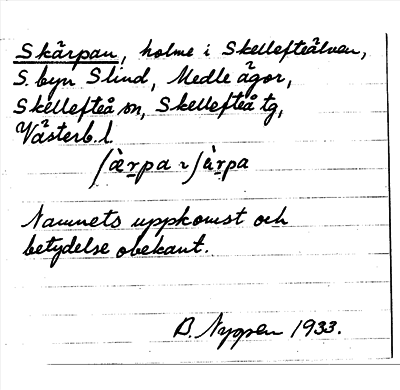 Skärpan, holme i Skellefteälven,
S. byn Slind, Medle ägor,
Skellefteå sn, Skellefteå tg,
Västerb. l.
ʃæ̀r̠pa ~ ʃàr̠pa
Namnets uppkomst och
betydelse obekant.
B. Nygren 1933.